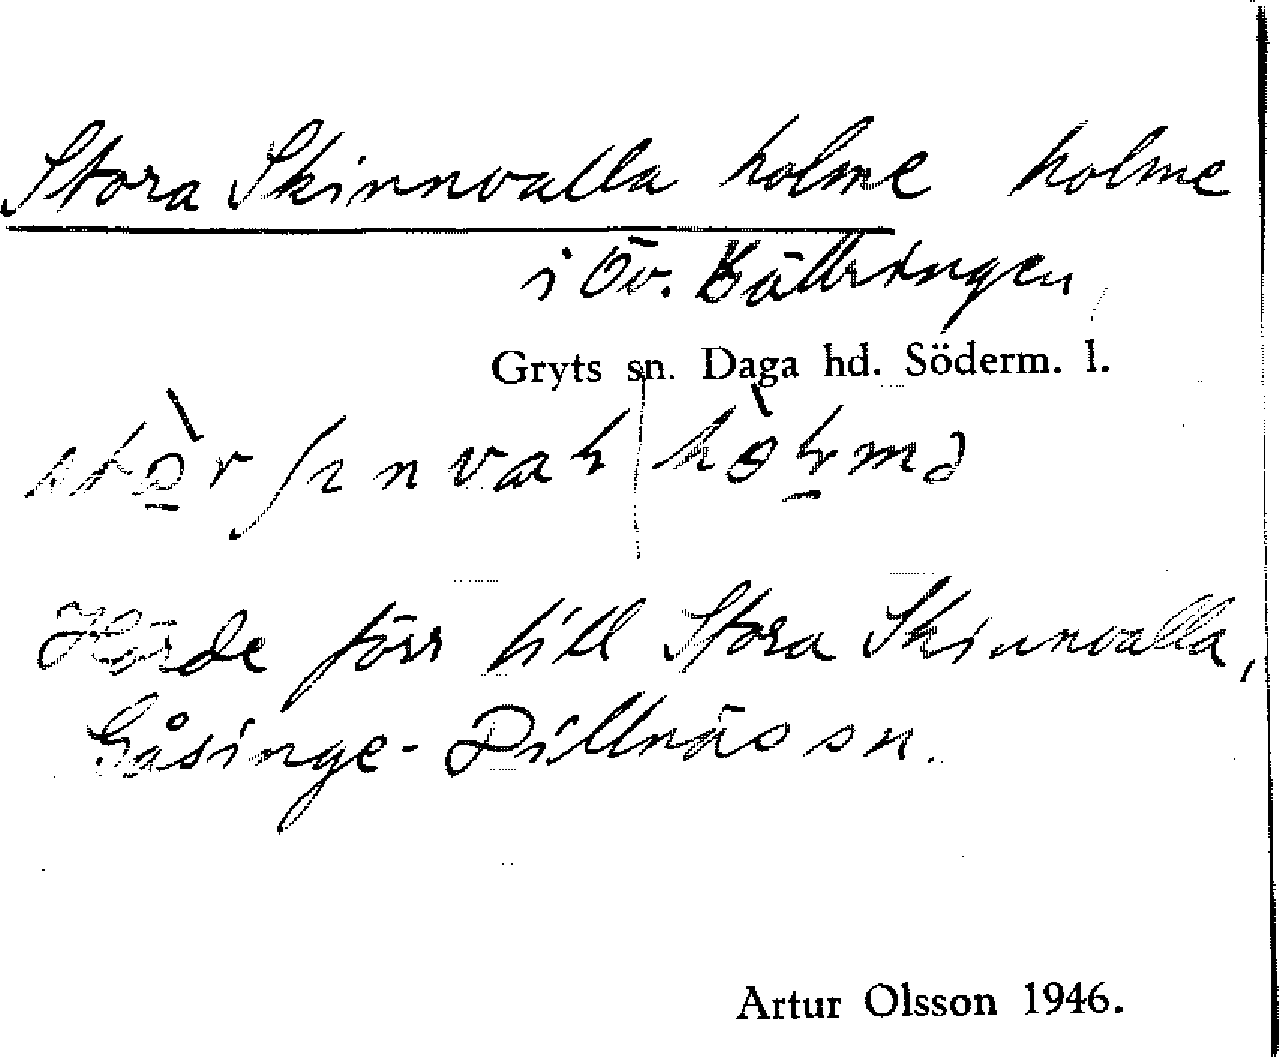 Stora Skinnvalla holme holme
i Öv. Källringen
Gryts sn. Daga hd. Söderm. l.
Hörde förr till Stora Skinnvalla,
Gåsinge-Dillnäs sn.
Artur Olsson 1946.